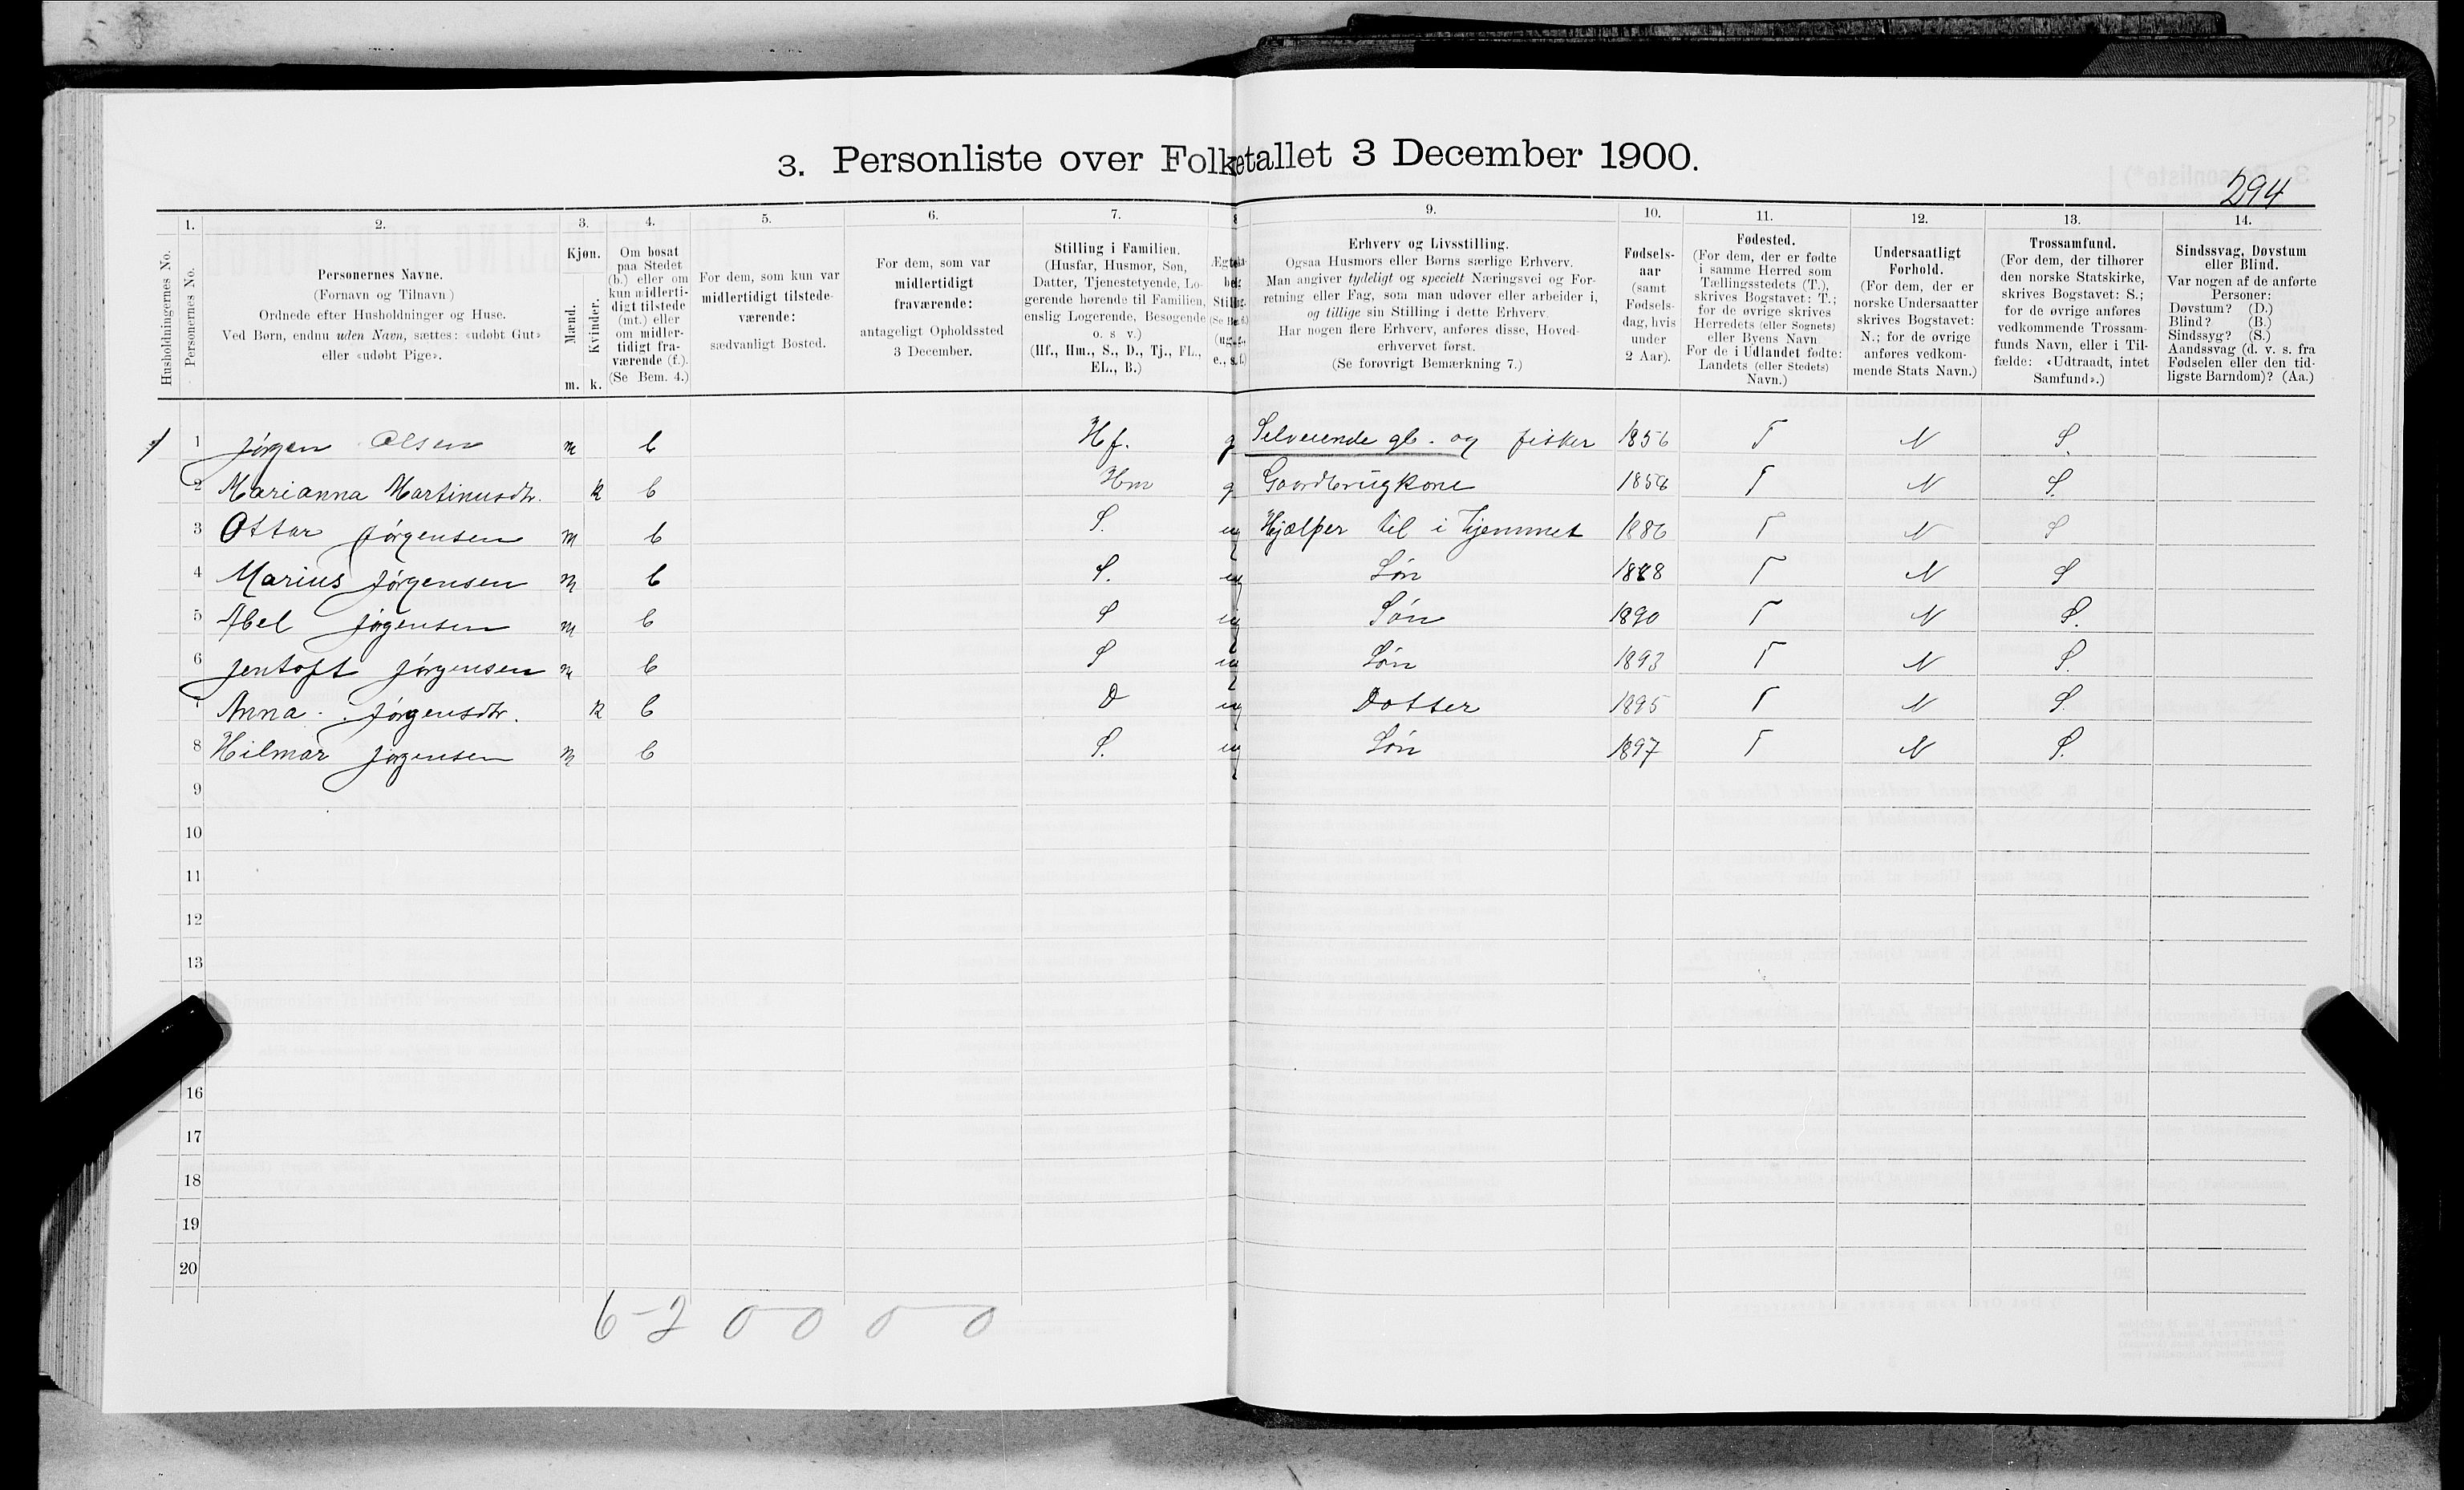 3. Personliste over Folketallet 3 December 1900.
294
1. 2. 3. 4. 5. 6. 7. 9. 10. 11. 12. 13. 14.
Husholdningernes No.
Personernes No.
Personernes Navne.
(Fornavn og Tilnavn)
Ordnede efter Husholdninger og Huse.
Ved Børn, endnu uden Navn, sættes: «udøbt Gut»
eller «udøbt Pige».
Kjøn.
Mænd.
Kvinder.
m. k.
Om bosat
paa Stedet
(b.) eller om
kun midlerti-
digt tilstede
(mt.) eller
om midler-
tidigt fra-
værende (f.).
(Se Bem. 4.)
For dem, som kun var
midlertidigt tilstede-
værende:
sædvanligt Bosted.
For dem, som var
midlertidigt
fraværende:
antageligt Opholdssted
3 December.
Stilling i Familien.
(Husfar, Husmor, Søn,
Datter, Tjenestetyende, Lo-
gerende hørende til Familien,
enslig Logerende, Besøgende
o. s v.)
(Hf., Hm., S., D., Tj., FL.,
EL., B.)
Erhverv og Livsstilling.
Ogsaa Husmors eller Børns særlige Erhverv.
Man angiver tydeligt og specielt Næringsvei og For-
retning eller Fag, som man udøver eller arbeider i,
og tillige sin Stilling i dette Erhverv.
Har nogen flere Erhverv, anføres disse, Hoved-
erhvervet først.
(Se forøvrigt Bemærkning 7.)
Fødsels-
aar
(samt
Fødsels-
dag, hvis
under
2 Aar).
Fødested.
(For dem, der er fødte
i samme Herred som
Tællingsstedets (T.),
skrives Bogstavet: T.;
for de øvrige skrives
Herredets (eller Sognets)
eller Byens Navn
For de i Udlandet fødte:
Landets (eller Stedets)
Navn.)
Undersaatligt
Forhold.
(For dem, der er
norske Undersaatter
skrives Bogstavet:
N.; for de øvrige
anføres vedkom-
mende Stats Navn.)
Trossamfund.
(For dem, der tilhører
den norske Statskirke,
skrives Bogstavet: S.;
for de øvrige anføres
vedkommende Trossam-
funds Navn, eller i Til-
fælde: «Udtraadt, intet
Samfund».)
Sindssvag, Døvstum
eller Blind.
Var nogen af de anførte
Personer:
Døvstum? (D.)
Blind? (B.)
Sindssyg? (S.)
Aandssvag (d. v. s. fra
Fødselen eller den tid-
ligste Barndom)? (Aa.)
1 Jørgen Olsen m b Hf. g Selveiende gb. og fisker 1856 T N S.
2 Marianna Martinusdtr. k b Hm g Gaardbrugkone 1858 T N S.
3 Ottar Jørgensen m b S. ug Hjælper til i hjemmet 1886 T N S
4 Marius Jørgensen m b S. ug Søn 1888 T N S
5 Abel Jørgensen m b S ug Søn 1890 T N S.
6 Jentoft Jørgensen m b S ug Søn 1893 T N S.
7 Anna Jørgensdtr. k b D ug Datter 1895 T N S.
8 Hilmar Jørgensen m b S. ug Søn 1897 T N S.
9
10
11
12
13
16
17
18
19
20
6-2 0 0 0 0